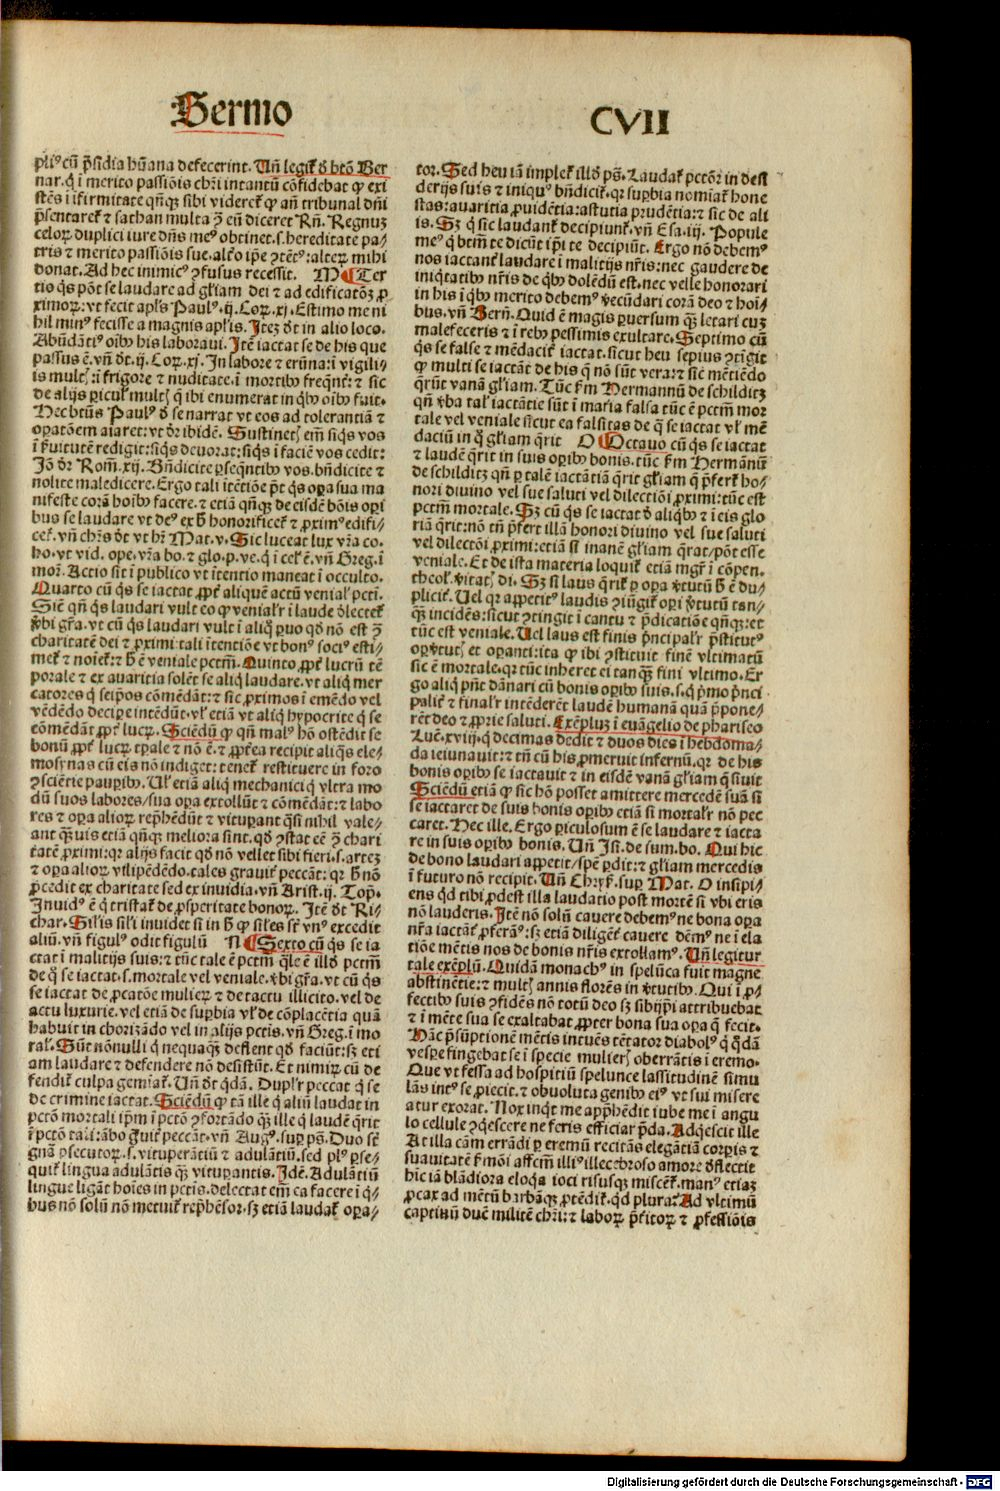 Sermo
CVII
plꝰ cū p̄sidia hūana defecerint. Un̄ legit̃ d̕ bt̄o Ber
nar. q̇ ī merito passiōis chr̄i intantū cōfidebat ꝙ exi
stēs ī īfirmitate qn̄qꝫ sibi videret̃ ꝙ an̄ tribunal dn̄i
p̄sentaret̃ ⁊ sathan multa ꝯ eū diceret Rn̄. Regnuꝫ
celoꝝ duplici iure dn̄s meꝰ obtinet. s. hereditate pa-
tris ⁊ merito passiōis sue. altero ip̄e ꝯtētꝰ: alteꝝ mihi
donat. Ad hec inimicꝰ ꝯfusus recessit. M Ter
tio q̇s pōt se laudare ad gl̄iam dei ⁊ ad edificatōꝫ ꝓ
ximoꝝ. vt fecit apl̄s Paulꝰ. ij. Coꝝ. xj. Estimo me ni
hil minꝰ fecisse a magnis apl̄is. Iteꝫ dt̄ in alio loco.
Abūdātiꝰ oībꝰ his laboraui. Itē iactat se de his que
passus ē. vn̄ dt̄. ij. Coꝝ. xj. In labore ⁊ erūna: ī vigili/
is mult̃: ī frigore ⁊ nuditate. ī mortibꝰ freqn̄t̃: ⁊ sic
de alijs ꝑicul̃ mult̃ q̄ ibi enumerat in q̇bꝰ oībꝰ fuit.
Hec btūs Paulꝰ d̕ se narrat vt eos ad tolerantiā ⁊
oꝑatōem aīaret: vt dr̄ ibidē. Sustinet̃ em̄ siq̇s vos
ī ẜuitutē redigit: siq̇s deuorat: siq̇s ī faciē vos cedit:
Iō dr̄ Rom̄. xij. Bn̄dicite ꝑseqn̄tibꝰ vos. bn̄dicite ⁊
nolite maledicere. Ergo tali ītētiōe pōt q̇s oꝑa sua ma
nifeste corā hoībꝰ facere. ⁊ etiā qn̄qꝫ de eisdē bōis oꝑi
bus se laudare vt deꝰ ex h̄ honorificet̃ ⁊ ꝓximꝰ edifi/
cet̃. vn̄ chr̄s dt̄ vt hr̄ Mat. v. Sic luceat lux vr̄a co.
ho. vt vid. ope. vr̄a bo. ⁊ glo. p. ve. q̇ ī cel̃ ē. vn̄ Greg. ī
mor̄. Actio sit ī publico vt ītentio maneat ī occulto.
Quarto cū q̇s se iactat ꝓpt̃ aliquē actū venial̃ pctī.
Sic̄ qn̄ q̇s laudari vult eo ꝙ venialr̄ ī laude d̕lectet̃
ꝟbi gr̄a. vt cū q̇s laudari vult ī aliq̇ ꝑuo qd̕ nō est ꝯ
charitatē dei ⁊ ꝓximi: tali ītentiōe vt bonꝰ sociꝰ esti/
met̃ ⁊ noīet̃: ⁊ h̄ ē veniale pctm̄. Quinto ꝓpt̃ lucrū tē
porale ⁊ ex auaritia solēt se aliq̇ laudare. vt aliq̇ mer
catores q̇ seip̄os cōmēdāt: ⁊ sic ꝓximos ī emēdo vel
vēdēdo deciꝑe intēdūt. vl̃ etiā vt aliq̇ hypocrite q̇ se
cōmēdāt ꝓpt̃ lucꝝ. Sciēdū ꝙ qn̄ malꝰ hō ostēdit se
bonū ꝓpt̃ lucꝝ tꝑale ⁊ nō ē. ⁊ ꝓpt̃ea recipit aliq̇s ele/
mosynas cū eis nō indiget: tenet̃ restituere in foro
ꝯsciētie pauꝑibꝰ. Ul̃ etiā aliq̇ mechanici q̇ vltra mo
dū suos labores/sua oꝑa extollūt ⁊ cōmēdāt: ⁊ labo
res ⁊ oꝑa alioꝝ rep̄hēdūt ⁊ vituꝑant q̄si nihil vale/
ant qꝫuis etiā qn̄qꝫ meliora sint. qd̕ ꝯstat eē ꝯ chari
tatē ꝓximi: qr alijs facit qd̕ nō vellet sibi fieri. s. arteꝫ
⁊ oꝑa alioꝝ vilipēdēdo. tales grauit̃ peccāt: qr h̄ nō
ꝓcedit ex charitate sed ex inuidia. vn̄ Arist. ij. Top̄.
Inuidꝰ ē q̇ tristat̃ de ꝓsperitate bonoꝝ. Itē dt̄ Ri/
char. Sil̃is sil̃i inuidet si in h̄ ꝙ sil̃es sūt vnꝰ excedit
aliū. vn̄ figulꝰ odit figulū N Sexto cū q̇s se ia
ctat ī malitijs suis: ⁊ tūc tale ē pctm̄ q̄le ē illd̕ pctm̄
de q̇ se iactat. s. mortale vel veniale. ꝟbi gr̄a. vt cū q̇s
se iactat de ꝑcatōe mulieꝝ ⁊ de tactu illicito. vel de
actu luxurie. vel etiā de suꝑbia vl̃ de cōplacētia quā
habuit in chorizādo vel in alijs pctis. vn̄ Greg. ī mo
ral̃. Sūt nōnulli q̇ nequaqꝫ deflent qd̕ faciūt: sꝫ eti
am laudare ⁊ defendere nō desistūt. Et nimiꝝ cū de
fendit̃ culpa gemiat̃. Un̄ dt̄ q̇dā. Duplr̄ peccat q̇ se
de crimine iactat. Sciēdū ꝙ tā ille q̇ aliū laudat in
pctō mortali ip̄m ī pctō ꝯfortādo qꝫ ille q̇ laudē q̄rit
ī pctō tali: ābo ḡuit̃ peccāt. vn̄ Augꝰ. suꝑ ps̄. Duo sūt
gn̄a ꝑsecutoꝝ. s. vituꝑantiū ⁊ adulātiū. sed plꝰ ꝑse/
quit̃ lingua adulātis qꝫ vituꝑantis. Idē. Adulātiū
lingue ligāt hoīes in pctis. delectat em̄ ea facere ī q̇/
bus nō solū nō metuit̃ rep̄hēsor. sꝫ etiā laudat̃ oꝑa/
tor. Sed heu iā implet̃ illd̕ ps̄. Laudat̃ pctōr in desi
derijs suis ⁊ iniquꝰ bn̄dicit̃. qr suꝑbia noīat̃ hone
stas: auaritia ꝓuidētia: astutia prudētia: ⁊ sic de ali
is. Sꝫ q̇ sic laudant̃ decipiunt̃. vn̄ Esa. iij. Popule
meꝰ q̇ btm̄ te dicūt ip̄i te decipiūt. Ergo nō debemꝰ
nos iactant̃ laudare ī malitijs nr̄is: nec gaudere de
iniq̇tatibꝰ nr̄is de q̇bꝰ dolēdū est. nec velle honorari
in his ī q̇bꝰ merito debemꝰ ꝟecūdari corā deo ⁊ hoī/
bus. vn̄ Bern̄. Quid ē magis ꝑuersum qꝫ letari cuꝫ
malefeceris ⁊ ī rebꝰ pessimis exultare. Septimo cū
q̇s se false ⁊ mēdacit̃ iactat. sicut heu sepius ꝯtīgit
ꝙ multi se iactāt de his q̄ nō sūt vera: ⁊ sic mētiēdo
q̄rūt vanā gl̄iam. Tūc ẜm Hermannū de schilditz
qn̄ ꝟba tal̃ iactātie sūt ī maīa falsa tūc ē pctm̄ mor
tale vel veniale sicut ea falsitas de q̄ se iactat vl̃ mē
daciū in q̇ gl̄iam q̄rit O Octauo cū q̇s se iactat
⁊ laudē q̄rit in suis oꝑibꝰ bonis. tūc ẜm Hermānū
de schilditz qn̄ ꝑ talē iactātiā q̄rit gl̄iam q̄ p̄fert̃ ho/
nori diuino vel sue saluti vel dilectiōi ꝓximi: tūc est
pctm̄ mortale. Sꝫ cū q̇s se iactat d̕ aliq̇bꝰ ⁊ ī eis glo
riā q̄rit: nō tn̄ p̄fert illā honori diuino vel sue saluti
vel dilectōi ꝓximi: etiā si inanē gl̄iam q̄rat/pōt esse
veniale. Et de ista materia loquit̃ etiā mgr̄ ī cōpen.
theol̃. ꝟitat̃ di. Sꝫ si laus q̄rit̃ ꝑ oꝑa ꝟtutū h̄ ē du/
plicit̃. Uel qr appetitꝰ laudis ꝯiūgit̃ oꝑi ꝟtutū tan/
qꝫ incidēs: sicut ꝯtingit ī cantu ⁊ p̄dicatiōe qn̄qꝫ: et
tūc est veniale. Uel laus est finis p̄ncipalr̄ p̄stitutꝰ
oꝑi ꝟtut̃ et oꝑanti: ita ꝙ ibi ꝯstituit finē vltimatū
sic ē mortale. qr tūc inheret ei tanqꝫ fini vltimo. Er
go aliq̇ pn̄t dānari cū bonis oꝑibꝰ suis. s. q̇ p̄mo p̄nci
palit̃ ⁊ finalr̄ intēderēt laudē humanā quā p̄pone/
rēt deo ⁊ ꝓprie saluti. Exēpluꝫ ī euāgelio de phariseo
Luē. xviij. q̇ decimas dedit ⁊ duos dies ī hebdoma/
da ieiunauit: ⁊ tn̄ cū his ꝓmeruit infernū. qr de his
bonis oꝑibꝰ se iactauit ⁊ in eisdē vanā gl̄iam q̄siuit
Sciēdū etiā ꝙ sic hō posset amittere mercedē suā si
se iactaret de suis bonis oꝑibꝰ etiā si mortalr̄ nō pec
caret. Hec ille. Ergo ꝑiculosum ē se laudare ⁊ iacta
re in suis oꝑibꝰ bonis. Un̄ Isi. de sum. bo. Qui hic
de bono laudari appetit/spē ꝑdit: ⁊ gl̄iam mercedis
ī futuro nō recipit. Un̄ Chrys. suꝑ Mat. O insipi/
ens qd̕ tibi ꝓdest illa laudatio post mortē si vbi eris
nō lauderis. Itē nō solū cauere debemꝰ ne bona oꝑa
nr̄a iactāt̃ ꝓferāꝰ: sꝫ etiā diligēt̃ cauere dēmꝰ ne ī ela
tiōe mētis nos de bonis nr̄is extollamꝰ. Un̄ legitur
tale exēplū. Quidā monachꝰ in spelūca fuit magne
abstinētie: ⁊ mult̃ annis florēs in ꝟtutibꝰ. Qui ī ꝓ/
fectibꝰ suis ꝯfidēs nō totū deo sꝫ sibiip̄i attribuebat
⁊ ī mēte sua se exaltabat ꝓpter bona sua oꝑa q̄ fecit.
Hāc p̄sūptionē mētis intuēs tētator diabolꝰ q̇ q̇dā
vesꝑe fingebat se ī specie mulier̃ oberrātis ī eremo.
Que vt fessa ad hospitiū spelunce lassitudinē simu
lās intꝰ se ꝓiecit. ⁊ obuoluta genibꝰ eiꝰ vt sui misere
atur exorat. Nox inqt̄ me app̄hēdit iube me ī angu
lo cellule ꝯqescere ne feris efficiar p̄da. Adqescit ille
At illa cām errādi ꝑ eremū recitās elegātiā corꝑis ⁊
suauitatē ẜmōi affcm̄ illiꝰ illecebroso amore d̕flectit
hīc iā blādiora eloq̇a ioci risusqꝫ miscēt̃. manꝰ etiaꝫ
ꝓcax ad mētū barbāqꝫ ꝓtēdit̃. qd̕ plura? Ad vltimū
captiuū ducē militē chr̄i: ⁊ laboꝝ p̄t̃itoꝝ ⁊ ꝓfessiōis
Digitalisierung gefördert durch die Deutsche Forschungsgemeinschaft - DFG